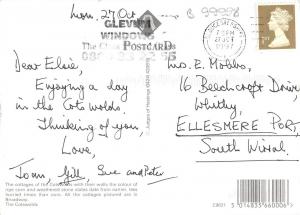 Mon, 27 Oct
B 99998
GLEVUM
WINDOWS
The Classic POSTCARDS
7.15PM
27 OCT
1997
1ST
Dear Elsie,
Enjoying a day
in the Cotswolds.
Thinking of you,
Love,
Joan, Gill, Sue and Peter
Mrs. E. Mobbs,
16 Beechcroft Drive
Whitby,
ELLESMERE PORT,
South Wirral
The cottages of the Cotswolds with their walls the colour of
ripe corn and weathered stone slates date from earlier, less
hurried times than ours. All the cottages pictured are in
Broadway.
The Cotswolds
5 014835 660006